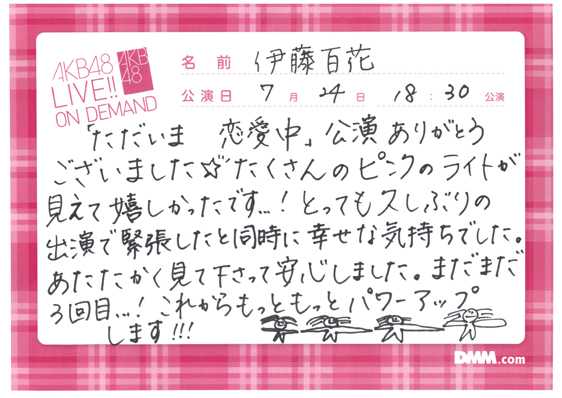 AKB48
LIVE!!
ON DEMAND
AKB
48
名前 伊藤百花
公演日 7月24日 18:30公演
「ただいま 恋愛中」公演ありがとう
ございました☆たくさんのピンクのライトが
見えて嬉しかったです...!とっても久しぶりの
出演で緊張したと同時に幸せな気持ちでした。
あたたかく見て下さって安心しました。まだまだ
3回目...!これからもっともっとパワーアップ
します!!!
DMM.com